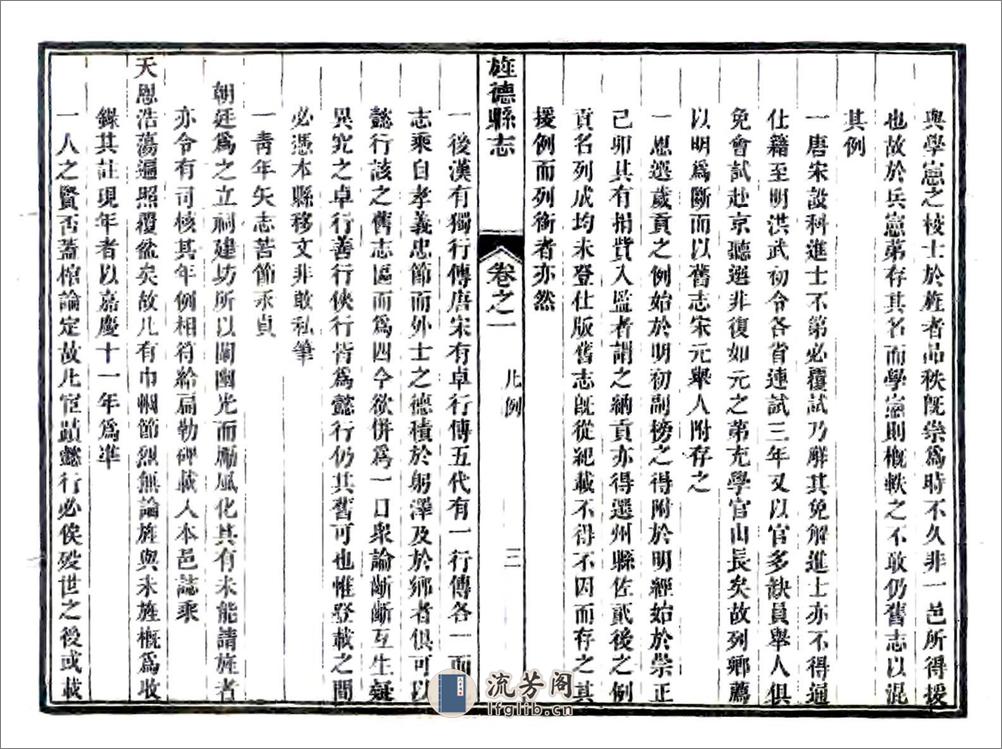 與學憲之校士於旌者品秩旣崇爲時不久非一邑所得援
也故於兵憲第存其名而學憲則概軼之不敢仍舊志以混
其例
一唐宋設科進士不第必覆試乃解其免解進士亦不得通
仕籍至明洪武初令各省連試三年又以官多缺員舉人俱
免會試赴京聽選非復如元之第充學官山長矣故列鄉薦
以明爲斷而以舊志宋元舉人附存之
一恩選歲貢之例始於明初副榜之得附於明經始於崇正
己卯其有捐貲入監者謂之納貢亦得選州縣佐貳後之例
貢名列成均未登仕版舊志旣從紀載不得不因而存之其
援例而列銜者亦然
旌德縣志
卷之一
凡例
三
一後漢有獨行傳唐宋有卓行傳五代有一行傳各一而
志乘自孝義忠節而外士之德積於躬澤及於鄉者俱可以
懿行該之舊志區而爲四今欲併爲一日眾論齗齗互生疑
異究之卓行善行俠行皆爲懿行仍其舊可也惟登載之間
必憑本縣移文非敢私筆
一靑年矢志苦節永貞
朝廷爲之立祠建坊所以闡幽光而勵風化其有未能請旌者
亦令有司核其年例相符給扁勒碑載入本邑誌乘
天恩浩蕩遍照覆盆矣故凡有巾幗節烈無論旌與未旌概爲收
錄其註現年者以嘉慶十一年爲準
一人之賢否蓋棺論定故凡宦蹟懿行必俟歿世之後或載
流芳阁
lfglib.cn